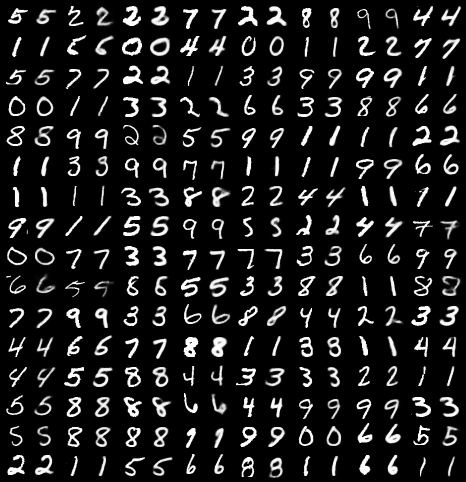 5 5 2 2 2 2 7 7 2 2 8 8 9 9 4 4
1 1 6 6 0 0 4 4 0 0 1 1 2 2 7 7
5 5 7 7 2 2 1 1 3 3 9 9 9 9 1 1
0 0 1 1 3 3 2 2 6 6 3 3 8 8 6 6
8 8 9 9 2 2 5 5 9 9 1 1 1 1 2 2
1 1 3 3 9 9 7 7 1 1 1 1 9 9 6 6
1 1 1 1 3 3 8 8 2 2 4 4 1 1 7 1
9 9 1 1 5 5 9 9 5 5 2 2 4 4 7 7
0 0 7 7 3 3 7 7 7 7 3 3 6 6 9 9
6 6 5 5 8 6 5 5 3 3 8 8 1 1 8 8
7 7 9 9 3 3 6 6 8 8 4 4 2 2 3 3
4 4 6 6 7 7 8 8 1 1 3 3 1 1 4 4
4 4 5 5 8 8 4 4 3 3 3 3 2 2 1 1
5 5 8 8 8 8 6 6 4 4 9 9 9 9 3 3
5 5 8 8 8 8 9 9 9 9 0 0 6 6 5 5
2 2 1 1 5 5 6 6 8 8 1 1 6 6 1 1